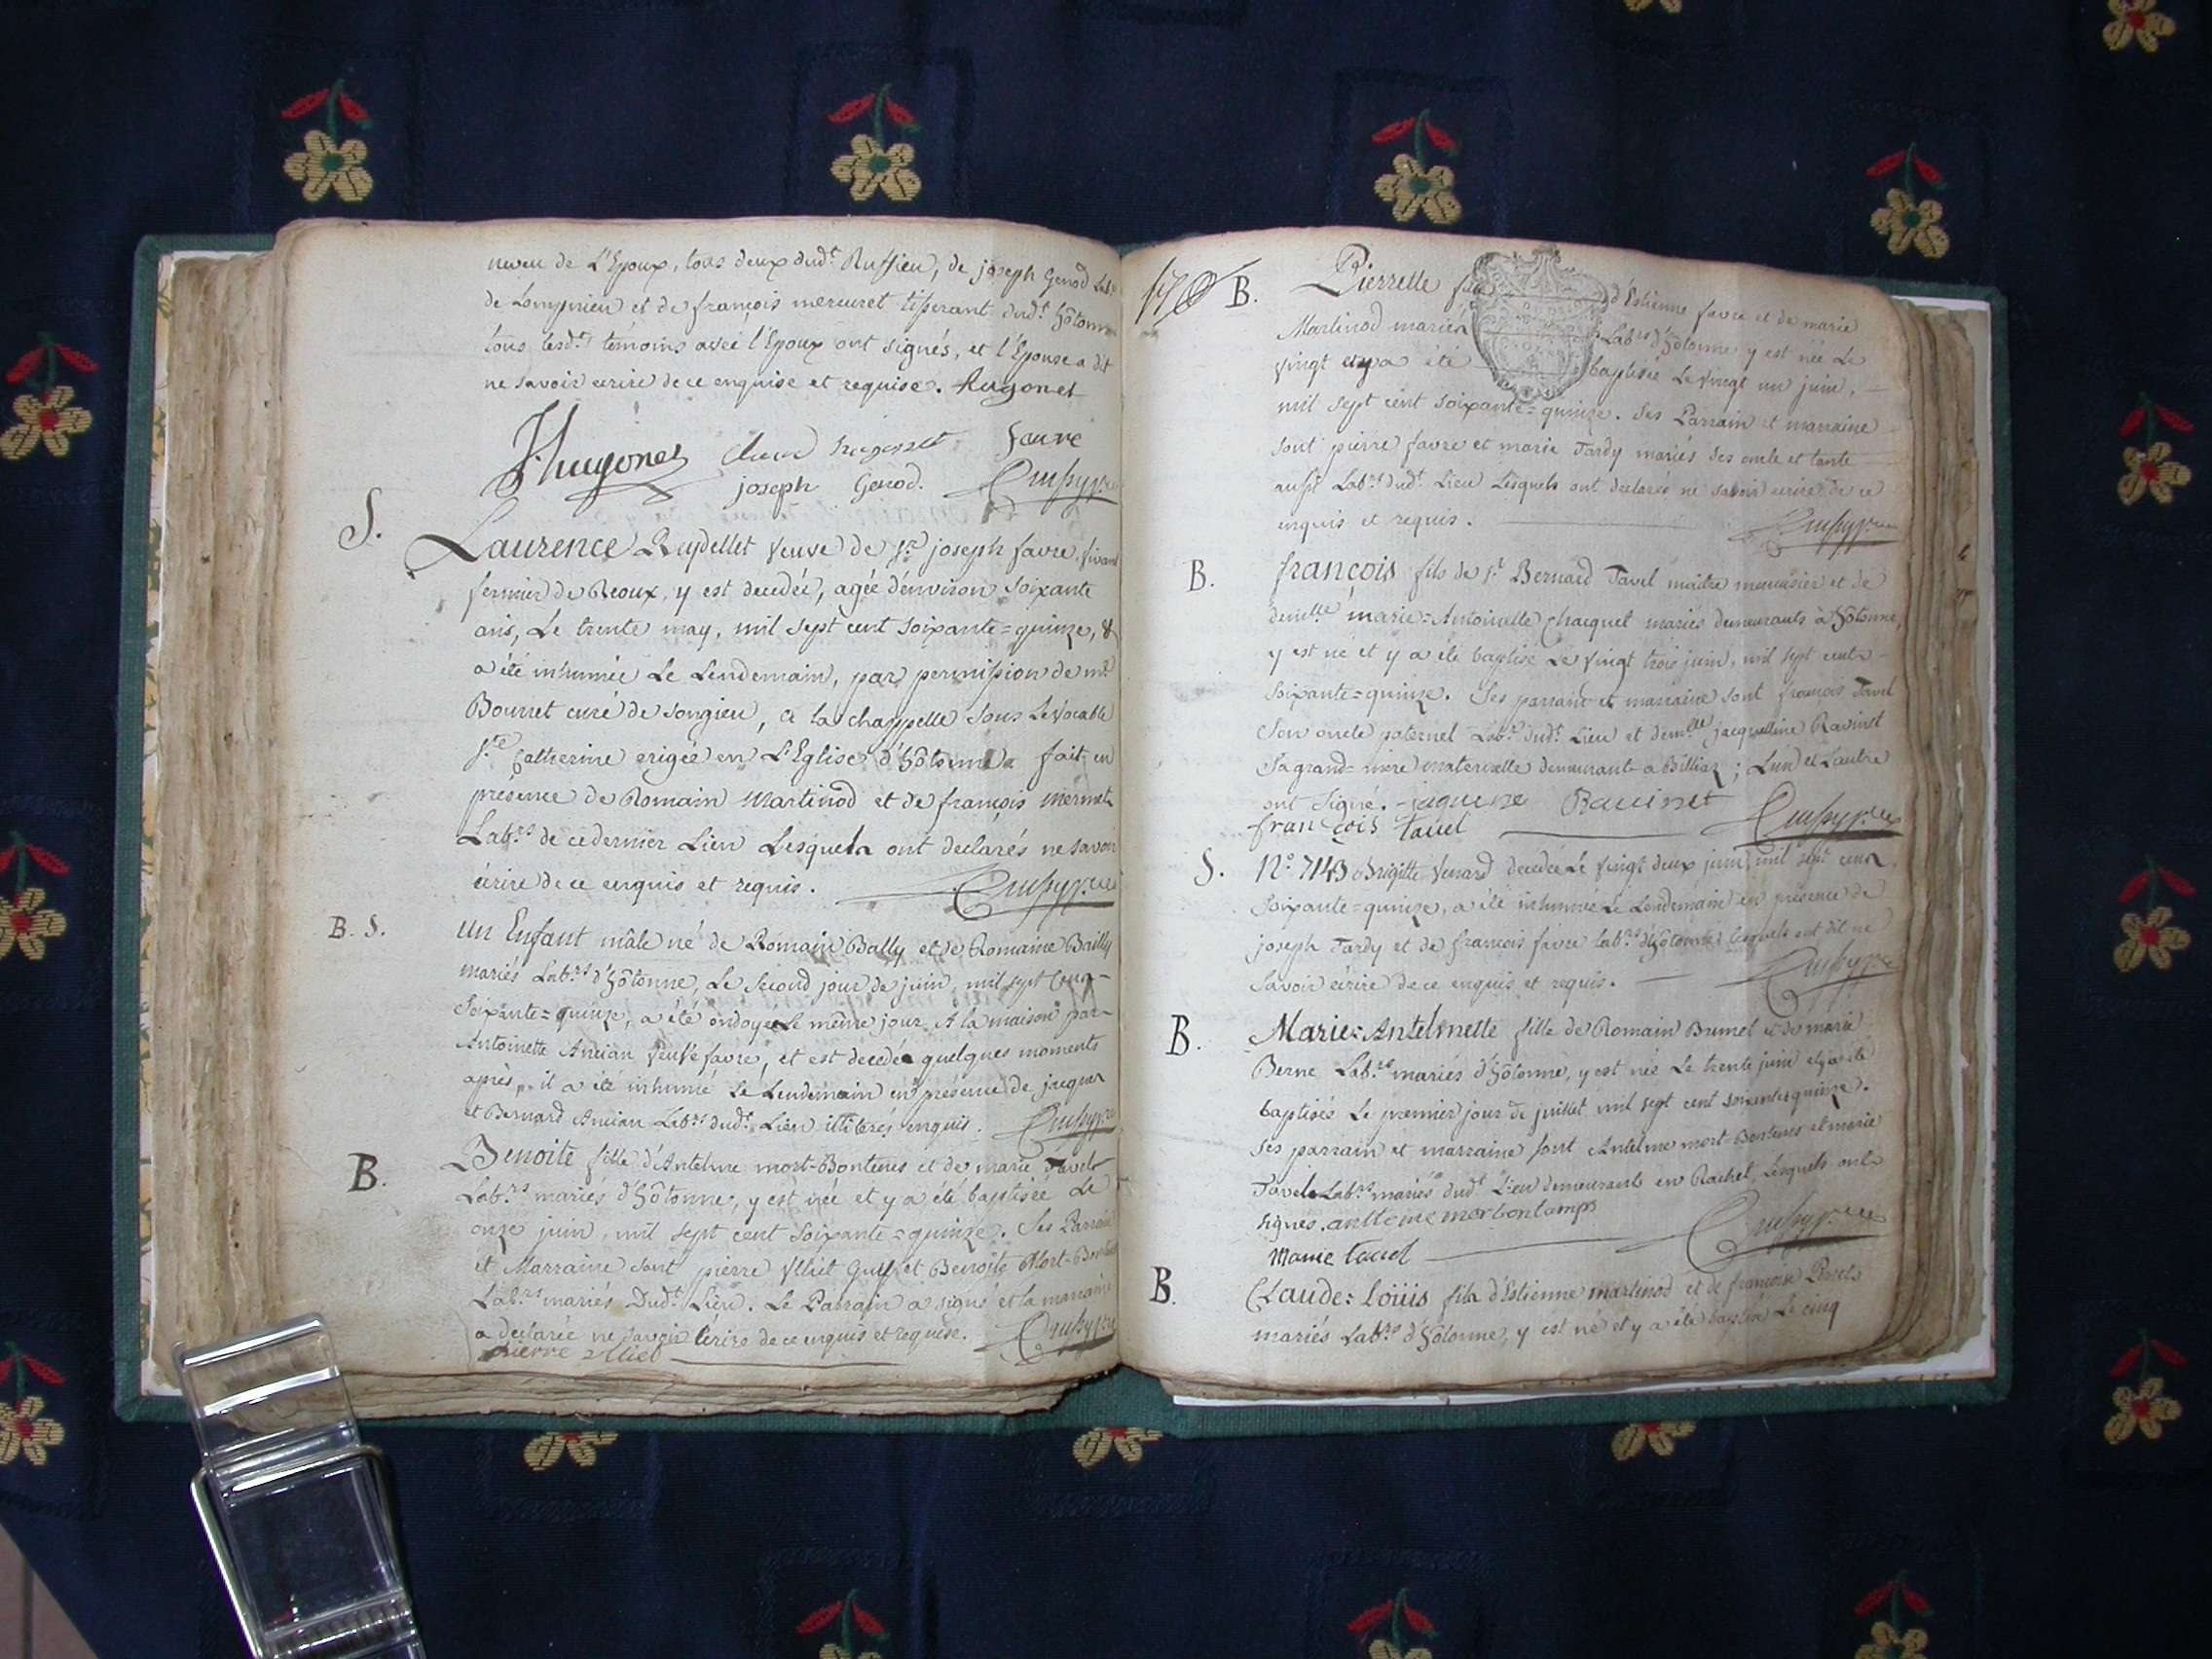 neveu de L'Epoux, tous deux dud.t Ruffieu, de joseph Genod Lab.r
de Lompnieu et de françois mercuret tisserant dud.t hôtonne
tous lesd.ts témoins avec l'Epoux ont signés, et l'Epouse a dit
ne savoir ecrire de ce enquise et requise. Hugonet
Hugonet favre
joseph Genod.
S. Laurence Ruydellet veuve de s.r joseph favre, vivant
fermier de Reoux, y est decedée, agée d'environ soixante
ans, Le trente may, mil sept cent soixante=quinze, &
a été inhumée Le Lendemain, par permission de m.r
Bourret curé de songieu, a la chappelle sous Le vocable
s.te Catherine erigée en L'Eglise d'hôtonne fait en
présence de Romain Martinod et de françois mermet
Lab.rs de ce dernier Lieu Lesquels ont declarés ne savoir
écrire de ce enquis et requis.
B. S. un Enfant mâle né de Romain Bailly et de Romaine Bailly
mariés Lab.rs d'hôtonne, Le second jour de juin, mil sept cent
soixante=quinze, a été ondoyé le même jour A la maison par
Antoinette Ancian veuve favre, et est decedé quelques moments
après, il a été inhumé Le Lendemain en présence de jacques
et Bernard Ancian Lab.rs dud.t Lieu illiterés enquis.
B. Benoite fille d'Antelme mort-Bontems et de marie Tavel
Lab.rs mariés d'hôtonne, y est née et y a été baptisée Le
onze juin, mil sept cent soixante=quinze. Ses Parrain
et Marraine sont pierre Ylliet Guy et Benoite Mort-Bontems
Lab.rs mariés Dud.t Lieu. Le Parrain a signé et la marraine
a declarée ne savoir écrire de ce enquis et requise.
pierre ylliet
B. Pierrette fille d'Estienne favre et de marie
Martinod mariés Lab.rs d'hôtonne y est née Le
vingt et y a été baptisée Le vingt un juin,
mil sept cent soixante=quinze. Ses Parrain et marraine
sont pierre favre et marie Tardy mariés ses oncle et tante
aussi Lab.rs dud.t Lieu Lesquels ont declarés ne savoir ecrire de ce
enquis et requis.
B. françois fils de s.r Bernard Tavel maitre menuisier et de
demelle marie=Antoinette Chacquet mariés demeurants à hôtonne,
y est né et y a été baptisé Le vingt trois juin, mil sept cent
soixante=quinze. Ses parrain et marraine sont françois Tavel
son oncle paternel Lab.r dud.t Lieu et demelle jacquelline Ravinet
sa grand=mère maternelle demeurant a Billiaz; L'un et L'autre
ont signé. jaquene Ravinet
françois tavel
S. N.o 7143 Brigitte Venard decedée Le vingt deux juin, mil sept cent
soixante=quinze, a été inhumée Le Lendemain en présence de
joseph Tardy et de françois favre Lab.rs d'hôtonne Lesquels ont dit ne
savoir écrire de ce enquis et requis.
B. Marie=Antelmette fille de Romain Brunel et de marie
Berne Lab.rs mariés d'hôtonne, y est née Le trente juin et y a été
baptisée Le premier jour de juillet mil sept cent soixante=quinze.
ses parrain et marraine sont Antelme mort-Bontems et marie
Tavel Lab.rs mariés dud.t Lieu demeurants en Rachet, Lesquels ont
signés. anttelme mortbontamps
marie tavel
B. Claude=Loüis fils d'Estienne martinod et de françoise
mariés Lab.rs d'hôtonne, y est né et y a été baptisé Le cinq